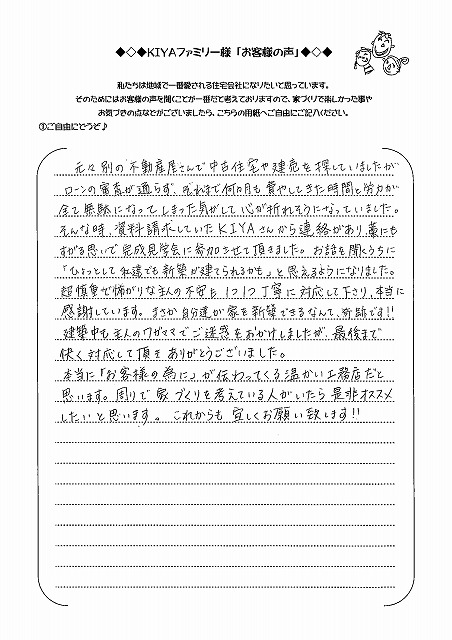 ◆◇◆KIYAファミリー様「お客様の声」◆◇◆
私たちは地域で一番愛される住宅会社になりたいて思っています。
そのためにはお客様の声を聞くことが一番だて考えておりますので、家づくりで楽しかった事や
お気づきの点などがございましたら、こちらの用紙へご自由にご記入ください。
③ご自由にどうぞ♪
元々別の不動産屋さんで中古住宅や建売を探していましたが
ローンの審査が通らず、それまで何ヶ月も費やしてきた時間と労力が
全て無駄になってしまった気がして心が折れそうになっていました。
そんな時、資料請求していたKIYAさんから連絡があり、藁にも
すがる思いで完成見学会に参加させて頂きました。お話を聞くうちに
「ひょっとして私達でも新築が建てられるかも」と思えるようになりました。
超慎重で怖がりな主人の不安も1つ1つ丁寧に対応して下さり、本当に
感謝しています。まさか自分達が家を新築できるなんて、奇跡です!!
建築中も主人のワガママでご迷惑をおかけしましたが、最後まで
快く対応して頂きありがとうございました。
本当に「お客様の為に」が伝わってくる温かい工務店だと
思います。周りで家づくりを考えている人がいたら是非オススメ
したいと思います。これからも宜しくお願い致します!!